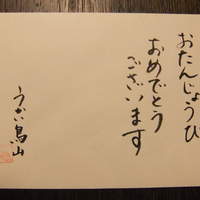 おたんじょうび
おめでとう
ございます
うかい鳥山